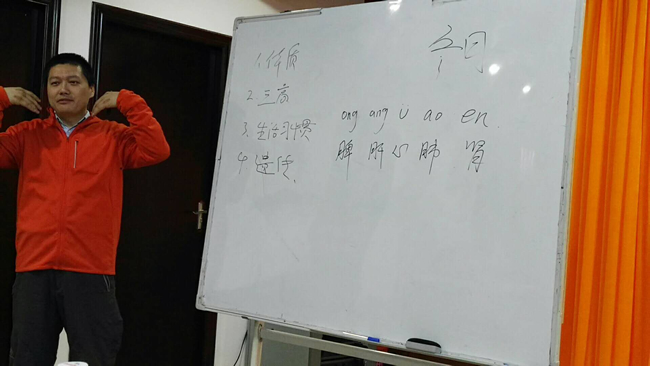 1.体质
2.三高
3.生活习惯
4遗传
ong ang u ao en
脾肝心肺肾